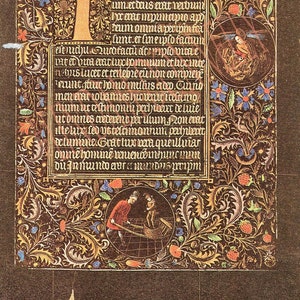 um et deus erat verbum
hoc erat in principio ap
deum omnia per ipsum facta
sunt et sine ipso factum
est nichil Quod factum est in ipo vita e
rat et vita erat lux hominum et lux in te
nebris lucet et tenebre eum non compreh
erunt fuit homo missus a deo Cui no
men erat iohannes hic venit in testimo
nium ut testimonium perhiberet de lumi
ne ut omnes crederent per illum Non erat
ille lux sed ut testimonium perhiberet de
lumine Erat lux vera que illumi
omnem hominem venientem in hunc mun
dum In mundo erat et mundus per ipm